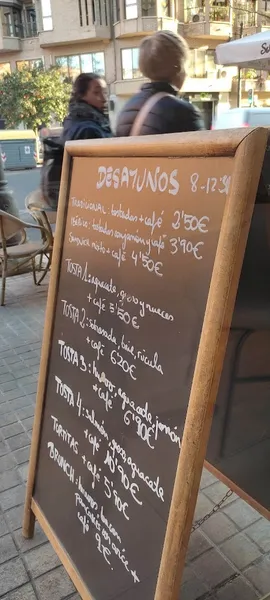 DESAYUNOS 8-12'30
TRADICIONAL: tostadas + café 2'50€
IBÉRICO: tostadas con jamón y café 3'90€
Sandwich mixto + café 4'50€
TOSTA 1: aguacate, queso y nueces
+ café 5'50€
TOSTA 2: sobrasada, brie, rúcula
+ café 6'20€
TOSTA 3: huevos, aguacate, jamón
+ café 6'90€
TOSTA 4: salmón, queso, aguacate
+ café 10'90€
TORTITAS + café 5'90€
BRUNCH: huevos, bacon
+
café 9€